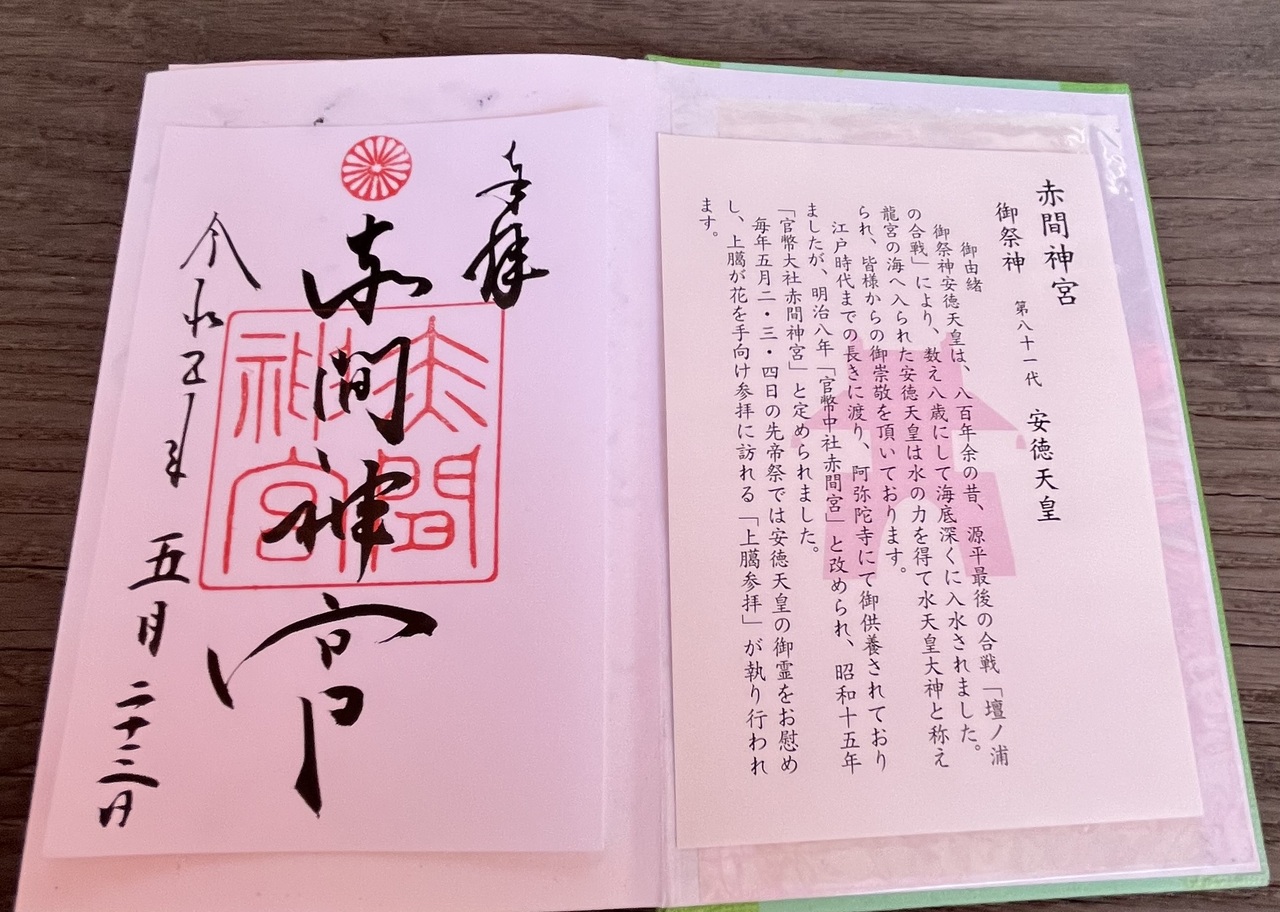 赤間神宮
御祭神 第八十一代 安徳天皇
御由緒
御祭神安徳天皇は、八百年余の昔、源平最後の合戦「壇ノ浦
の合戦」により、数え八歳にして海底深くに入水されました。
龍宮の海へ入られた安徳天皇は水の力を得て水天皇大神と称え
られ、皆様からの御崇敬を頂いております。
江戸時代までの長きに渡り、阿弥陀寺にて御供養されており
ましたが、明治八年「官幣中社赤間宮」と改められ、昭和十五年
「官幣大社赤間神宮」と定められました。
毎年五月二・三・四日の先帝祭では安徳天皇の御霊をお慰め
し、上臈が花を手向け参拝に訪れる「上臈参拝」が執り行われ
ます。
奉拝
赤間神宮
赤間
神宮
令和五年 五月二十三日